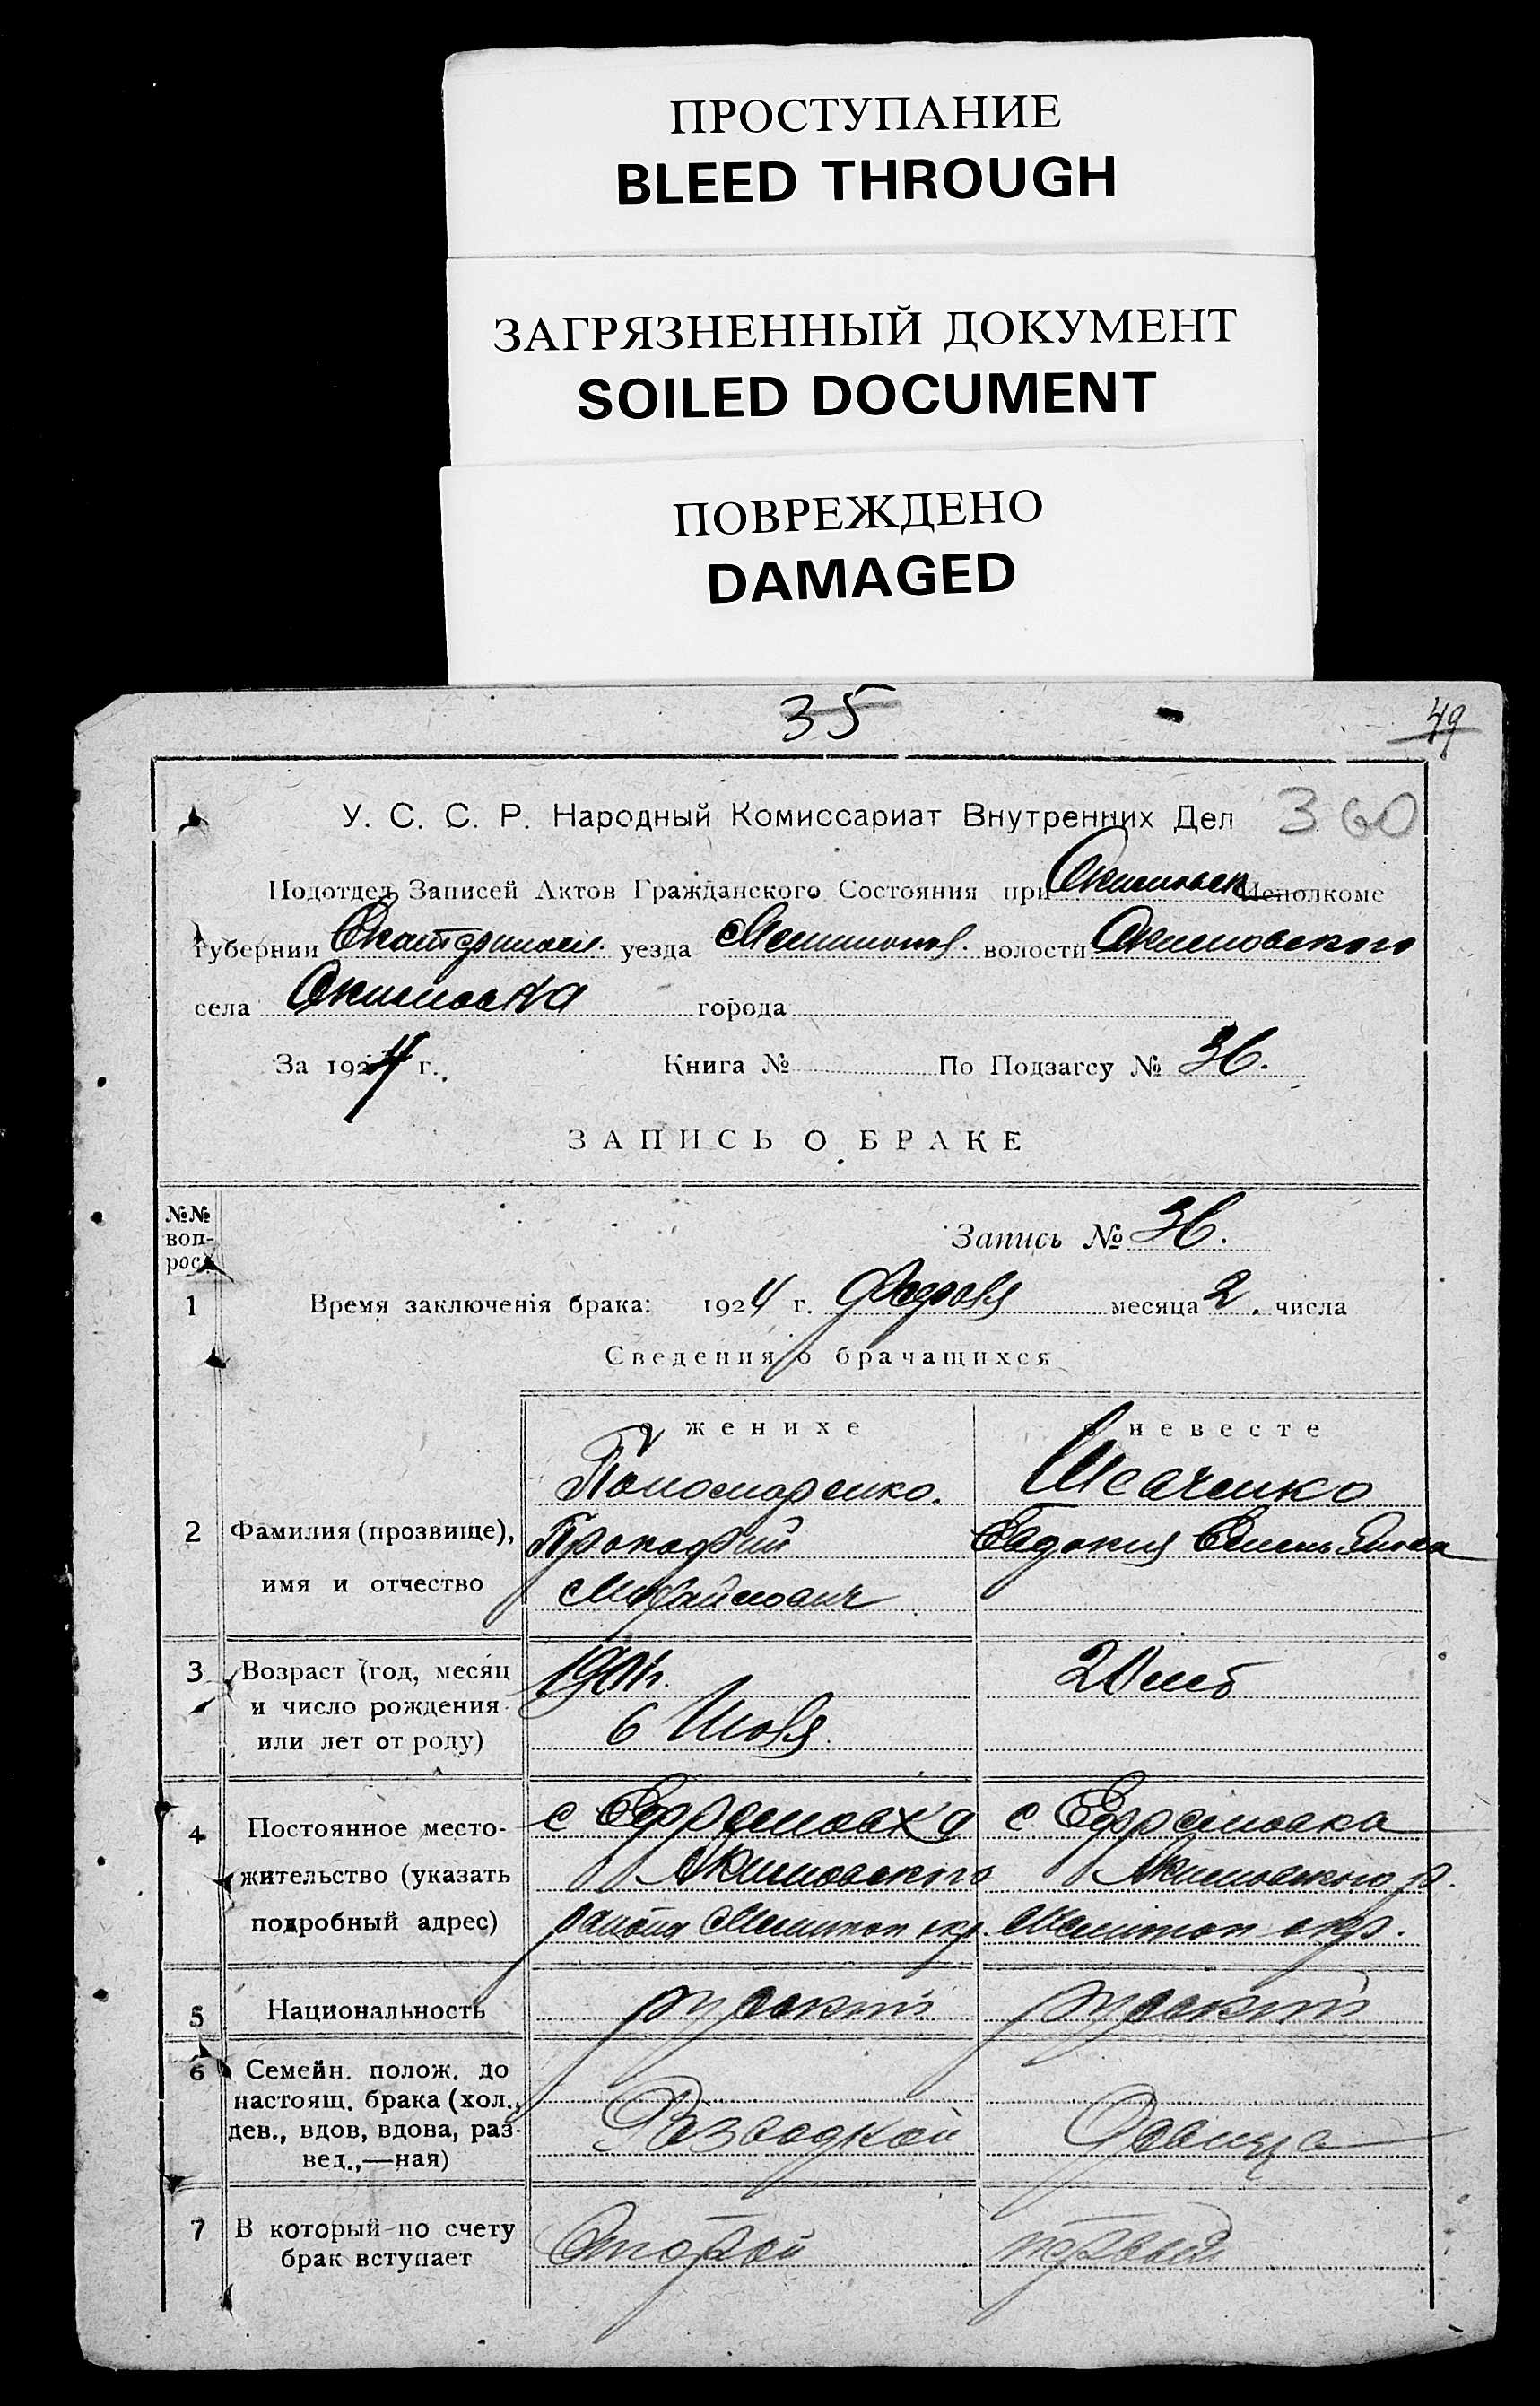 ПРОСТУПАНИЕ
BLEED THROUGH
ЗАГРЯЗНЕННЫЙ ДОКУМЕНТ
SOILED DOCUMENT
ПОВРЕЖДЕНО
DAMAGED
35 49
У. С. С. Р. Народный Комиссариат Внутренних Дел 360
Подотдел Записей Актов Гражданского Состояния при Акимовск Исполкоме
Губернии Екатериносл. уезда Мелитопол. волости Акимовского
села Акимовка города
За 1924 г. Книга № По Подзагсу № 36.
ЗАПИСЬ О БРАКЕ
№№ воп-рос.
Запись № 36.
1 Время заключенія брака: 1924 г. Февраля месяца 2. числа
Сведения о брачащихся
о женихе о невесте
Пономаренко.
2 Фамилия (прозвище), Евдокия Емельянова
имя и отчество Михайлович
3 Возраст (год, месяц 20 лет
и число рождения 6
или лет от роду)
4 Постоянное место- с Ефремовка с. Ефремовка
жительство (указать Акимовского Акимовского р.
подробный адрес) района Мелитоп окр. Мелитоп окр.
5 Национальность руский руский
6 Семейн. полож. до
настоящ. брака (хол.,
дев., вдов, вдова, раз- Девица
вед.,—ная)
7 В который по счету Второй первый
брак вступает